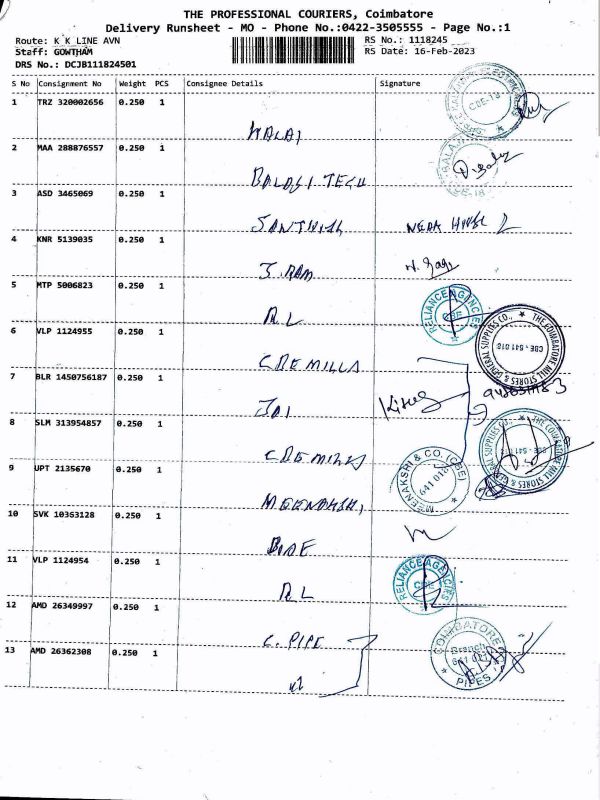 THE PROFESSIONAL COURIERS, Coimbatore
Delivery Runsheet - MO - Phone No.:0422-3505555 - Page No.:1
Route: K K LINE AVN
RS No.: 1118245
Staff: GOWTHAM
RS Date: 16-Feb-2023
DRS No.: DCJB111824501
S No Consignment No Weight PCS Consignee Details Signature
1 TRZ 320002656 0.250 1
2 MAA 288876557 0.250 1
BALAJI TECH
3 ASD 3465069 0.250 1
SANTHOSH
4 KNR 5139035 0.250 1
J. RAM
5 MTP 5006823 0.250 1
RL
RELIANCE AGENCIES
CBE
6 VLP 1124955 0.250 1
CBE MILLS
THE COIMBATORE MILL STORES & GENERAL SUPPLIES CO.,
CBE - 641 018
7 BLR 1450756187 0.250 1
JAI
8 SLM 313954857 0.250 1
CBE MILLS
THE COIMBATORE MILL STORES & GENERAL SUPPLIES CO.,
9 UPT 2135670 0.250 1
MEENAKSHI
MEENAKSHI & CO. (CBE)
641 018
10 SVK 10363128 0.250 1
11 VLP 1124954 0.250 1
RL
RELIANCE AGENCIES
CBE
12 AMD 26349997 0.250 1
C. PIPE
13 AMD 26362308 0.250 1
COIMBATORE
Branch
641 021
PIPES